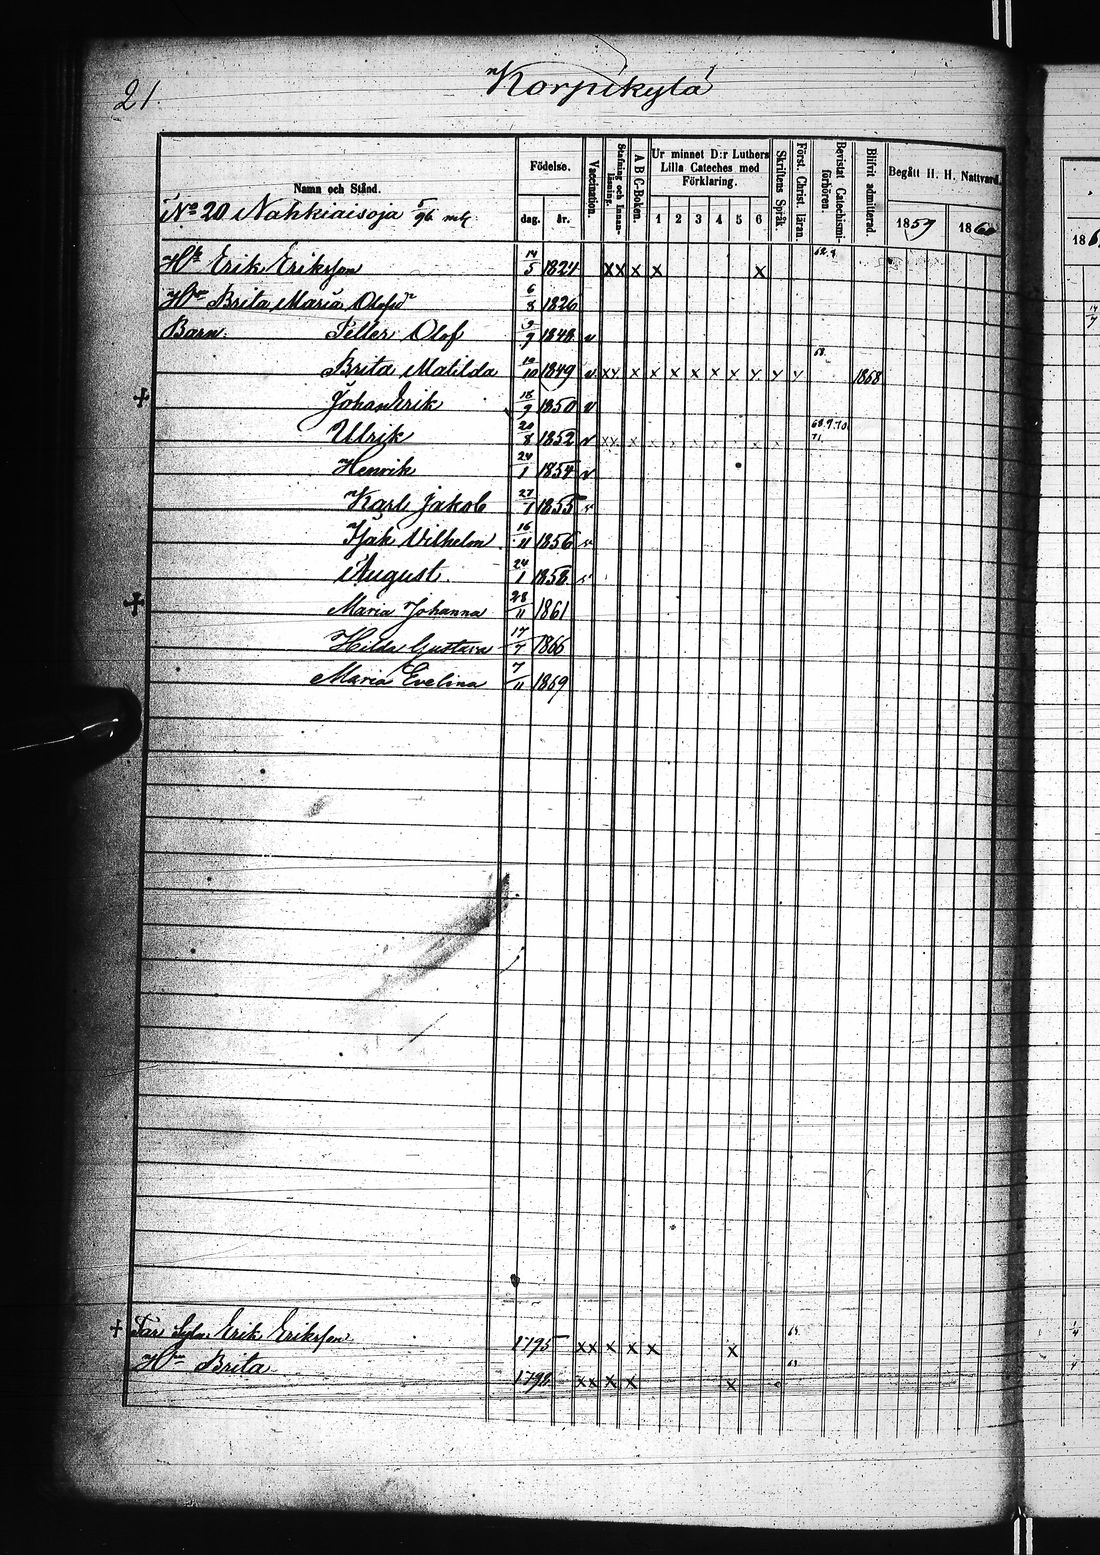 21.
Korpikylä
Namn och Stånd.
Födelse.
dag. år.
Vaccination.
Stafning och Innanläsning.
A B C-Boken.
Ur minnet D:r Luthers Lilla Cateches med Förklaring.
1 2 3 4 5 6
Skriftens Språk.
Först. Christ. läran.
Bevistat Catechismi-förhören.
Blifvit admitterad.
Begått H. H. Nattvard.
1859 1860
186
No 20 Nahkiaisoja 5/96 mtl
Hb Erik Eriksson 14/5 1824 xx x x x
Hu Brita Maria Olofsdr 6/8 1826
Barn: Petter Olof 9/9 1848 v
Brita Matilda 10/10 1849 v xx x x x x x x x x x 68. 1868
+ Johan Erik 18/9 1850 v
Ulrik 20/8 1852 v xx x x 68.9.70. 71.
Henrik 24/1 1854 v
Karl Jakob 27/7 1855 v
Isak Vilhelm 16/11 1856 v
August 24/1 1858 v
+ Maria Johanna 28/11 1861
Hilda Gustava 17/7 1866
Maria Evelina 7/11 1869
+ Far Sytn. Erik Eriksson 1795 xx x x x x
Hu Brita 1792 xx x x x